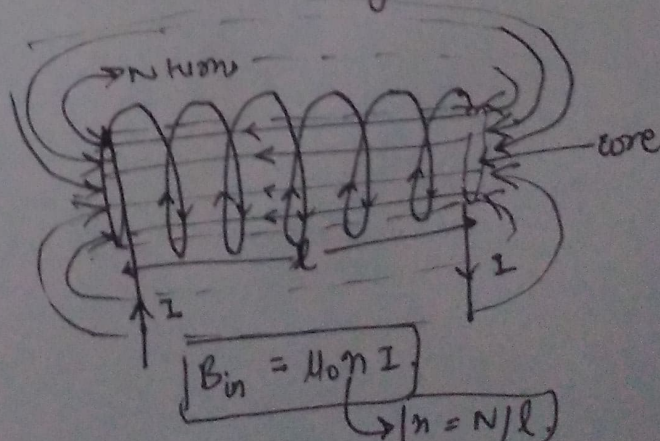 N turns
core
l
I
I
B_in = μ₀ n I
n = N/l